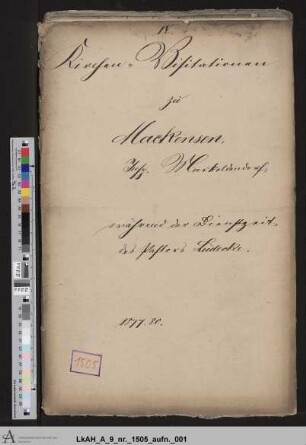 IV.
Kirchen-Visitationen
zu
Mackensen,
Insp. Markoldendorf,
während der Dienstzeit
des Pastors Lüdecke.
1877.80.
1505
LkAH_A_9_nr._1505_aufn._001